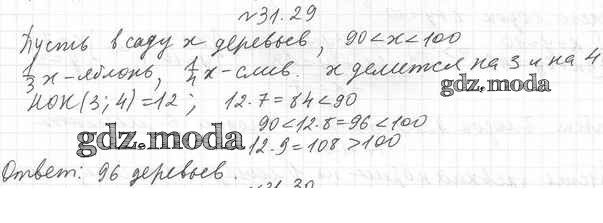 №31.29
Пусть в саду x деревьев, 90<x<100
1/3 x - яблонь, 1/4 x - слив. x делится на 3 и на 4
НОК(3;4)=12; 12·7=84<90
90<12·8=96<100
gdz.moda
gdz.moda
12·9=108>100
Ответ: 96 деревьев.
№31.30